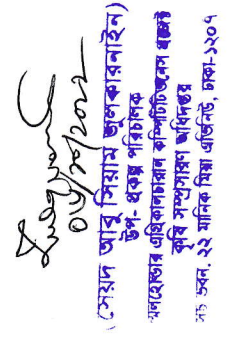 ০৬/০৮/২০১২
(সৈয়দ আবু সিয়াম জুলকারনাইন)
উপ- প্রকল্প পরিচালক
স্মলহোল্ডার এগ্রিকালচারাল কম্পিটিটিভনেস প্রজেক্ট
কৃষি সম্প্রসারণ অধিদপ্তর
ভবন, ২২ মানিক মিয়া এভিনিউ, ঢাকা-১২০৭